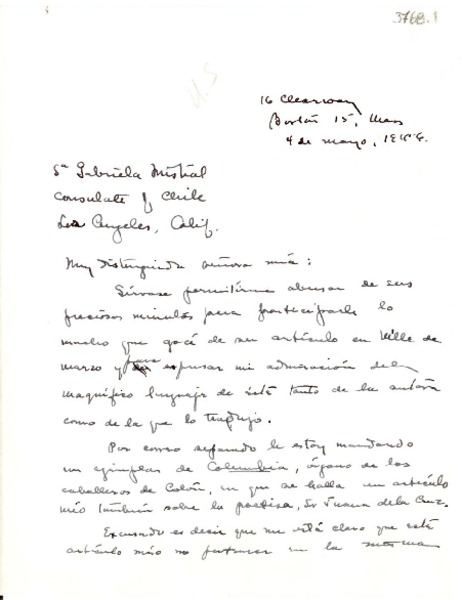 3768.1
U.S
16 Clearway
Boston 15, Mass
4 de mayo,
Sa Gabriela Mistral
Consulate of Chile
Los Angeles, Calif.
Muy distinguida señora mía:
Sírvase permitirme abusar de sus
preciosos minutos para participarle lo
mucho que gocé de su artículo en Mille de
marzo y para expresar mi admiración del
magnífico lenguaje de éste tanto de la autora
como de la que lo tradujo.
Por correo separado le estoy mandando
un ejemplar de Columbia, órgano de los
caballeros de Colón, en que se halla un artículo
mío también sobre la poetisa, Sr Juana de la Cruz.
Excusado es decir que me está claro que este
artículo mío no en la misma